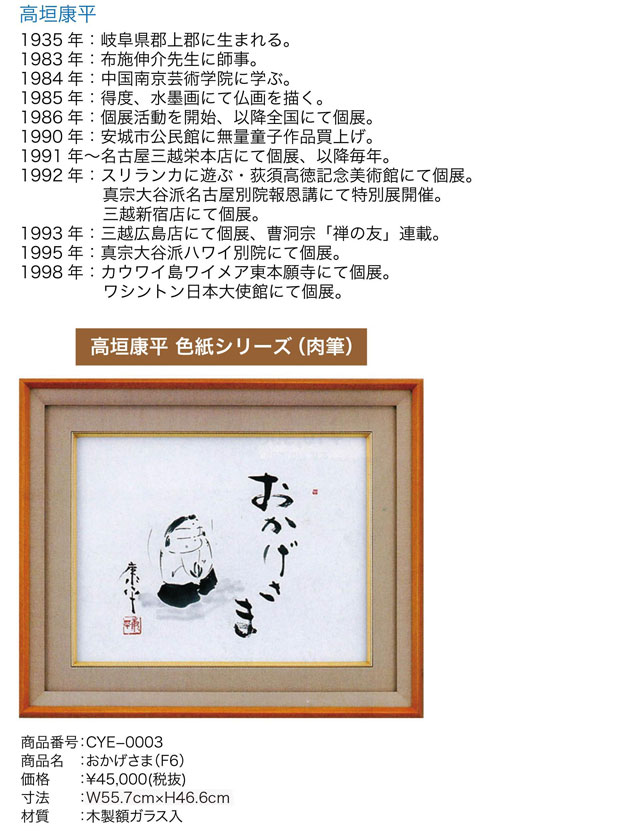 高垣康平
1935 年：岐阜県郡上郡に生まれる。
1983 年：布施伸介先生に師事。
1984 年：中国南京芸術学院に学ぶ。
1985 年：得度、水墨画にて仏画を描く。
1986 年：個展活動を開始、以降全国にて個展。
1990 年：安城市公民館に無量童子作品買上げ。
1991 年〜名古屋三越栄本店にて個展、以降毎年。
1992 年：スリランカに遊ぶ・荻須高徳記念美術館にて個展。
真宗大谷派名古屋別院報恩講にて特別展開催。
三越新宿店にて個展。
1993 年：三越広島店にて個展、曹洞宗「禅の友」連載。
1995 年：真宗大谷派ハワイ別院にて個展。
1998 年：カウワイ島ワイメア東本願寺にて個展。
ワシントン日本大使館にて個展。
高垣康平 色紙シリーズ（肉筆）
おかげさま
康平
商品番号：CYE−0003
商品名　：おかげさま（F6）
価格　　：¥45,000(税抜)
寸法　　：W55.7cm×H46.6cm
材質　　：木製額ガラス入